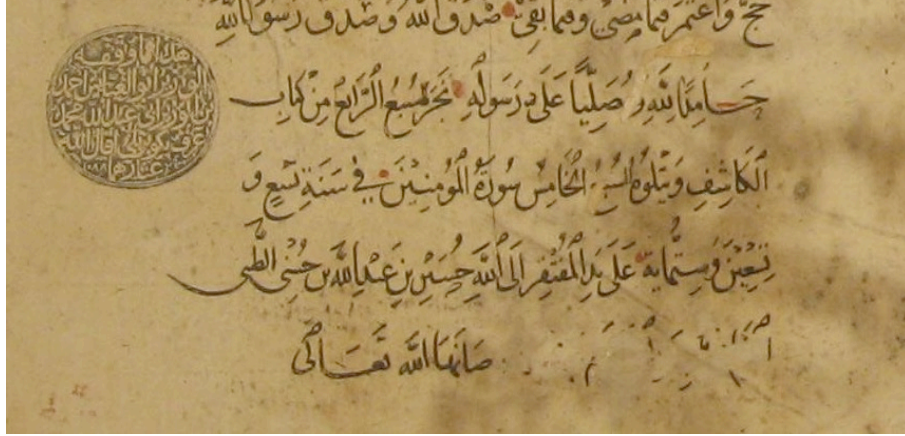 حج واعتمر فيما مضى وفيما بقى صدق الله وصدق رسول الله
حامدا لله و مصليا على رسوله نجز سبع الرابع من كتاب
الكاشف ويتلوه السبع الخامس سورة المؤمنين في سنة تسع و
تسعين وستماية على يد المفتقر الى الله حسين بن عبد الله بن
صانها الله تعالى
هذا ما وقفه
الوزير ابو العباس احمد
بن الوزير ابي عبد الله محمد
عرف بكوپريلي اقال الله
عثارهما ١٠٨٨